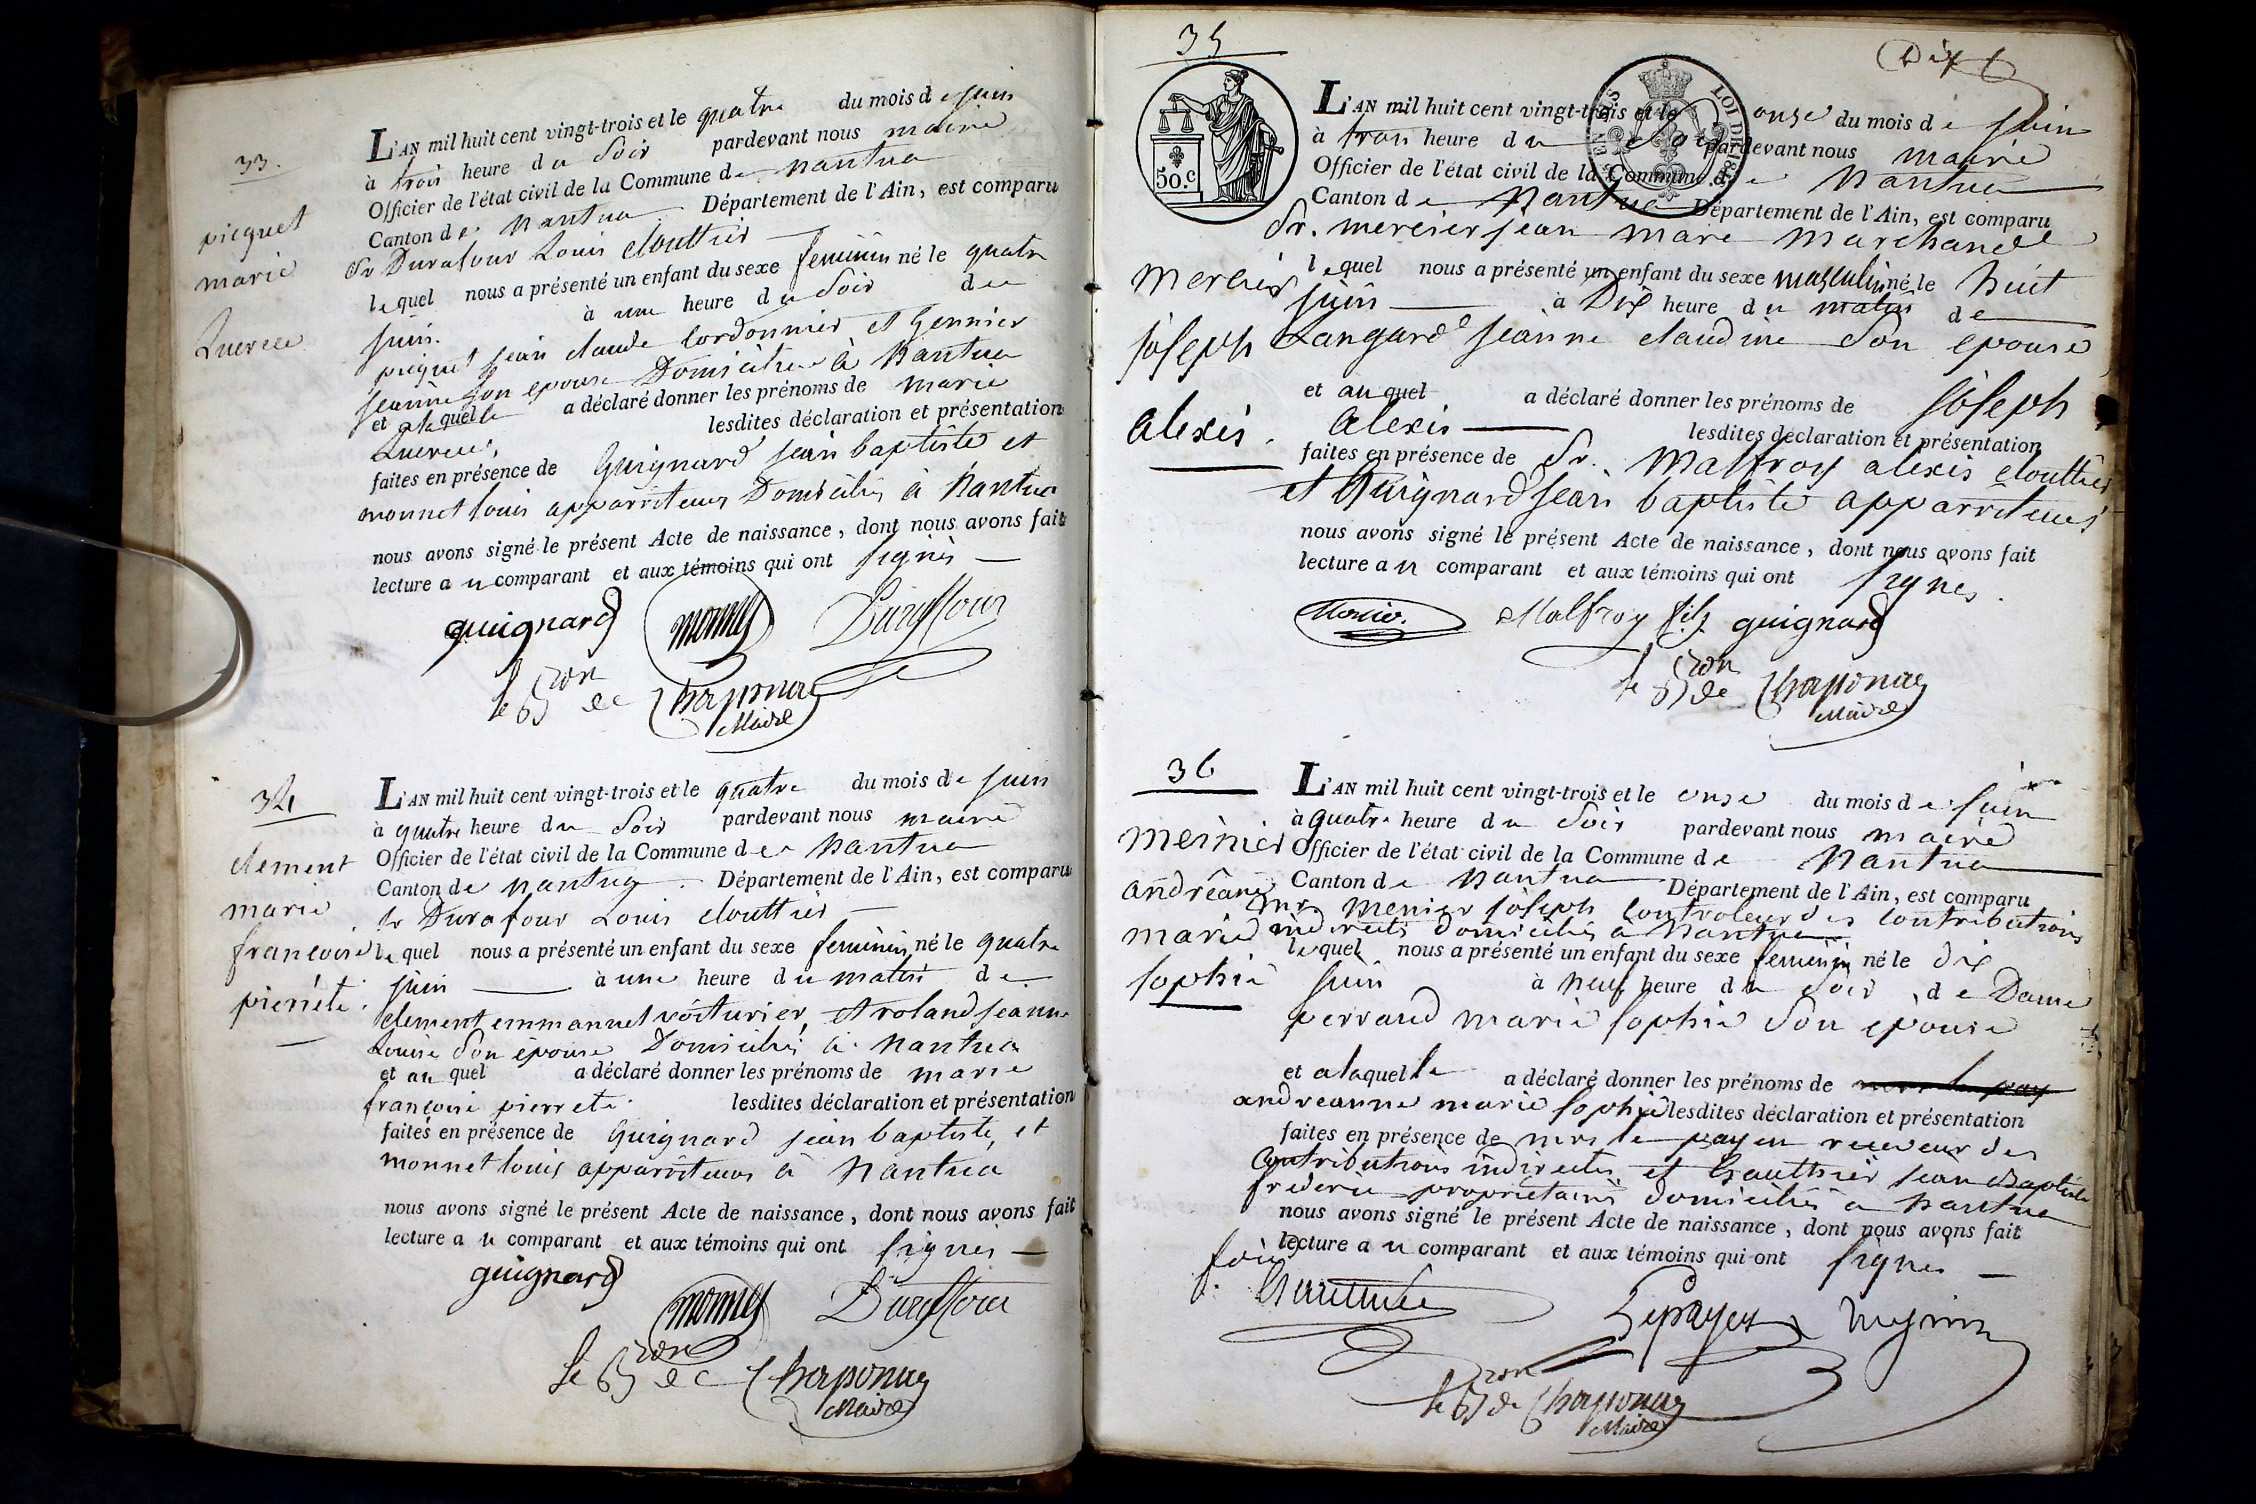 33.
picquet
marie
Lucrece
L'AN mil huit cent vingt-trois et le quatre du mois de juin
à trois heure du soir pardevant nous maire
Officier de l'état civil de la Commune de nantua
Canton de nantua Département de l'Ain, est comparu
Sr Durafour Louis clouttier
lequel nous a présenté un enfant du sexe feminin né le quatre
juin. à une heure du soir de
picquet jean claude cordonnier et Gennier
jeanne son epouse Domiciliés à nantua
et a laquelle a déclaré donner les prénoms de marie
Lucrece, lesdites déclaration et présentation
faites en présence de Guignard jean baptiste et
monnet louis apparriteurs Domiciliés à nantua
nous avons signé le présent Acte de naissance, dont nous avons fait
lecture au comparant et aux témoins qui ont signés
guignard monnet Duraffour
le Bon de Chaponay
Maire
34
clement
marie
francoise
pierrete.
L'AN mil huit cent vingt-trois et le quatre du mois de juin
à quatre heure du soir pardevant nous maire
Officier de l'état civil de la Commune de nantua
Canton de nantua. Département de l'Ain, est comparu
Sr Durafour Louis clouttier
lequel nous a présenté un enfant du sexe feminin né le quatre
juin à une heure du matin de
clement emmanuel voiturier, et roland jeanne
Louise son épouse Domiciliés à nantua
et au quel a déclaré donner les prénoms de marie
françoise pierrete. lesdites déclaration et présentation
faites en présence de Guignard jean baptiste, et
monnet louis apparriteurs à nantua
nous avons signé le présent Acte de naissance, dont nous avons fait
lecture au comparant et aux témoins qui ont signés
guignard
monnet Duraffour
le Bon de Chaponay
Maire
35
Dix
50.c
LOI DE 18
mercier
joseph
alexis.
L'AN mil huit cent vingt-trois et le onze du mois de juin
à trois heure du soir pardevant nous maire
Officier de l'état civil de la Commune de nantua
Canton de nantua Département de l'Ain, est comparu
Sr. mercier jean marie marchand
lequel nous a présenté un enfant du sexe masculin né le huit
juin à Dix heure du matin de
Langard jeanne claudine son epouse
et au quel a déclaré donner les prénoms de joseph
alexis lesdites déclaration et présentation
faites en présence de Sr. Malfroy alexis clouttier
et Guignard jean baptiste apparriteurs
nous avons signé le présent Acte de naissance, dont nous avons fait
lecture au comparant et aux témoins qui ont signés.
Mercier. Malfroy fils guignard
le Bon de Chaponay
Maire
36
meinier
andréanne
marie
sophie
L'AN mil huit cent vingt-trois et le onze du mois de juin
à quatre heure du soir pardevant nous maire
Officier de l'état civil de la Commune de nantua
Canton de nantua Département de l'Ain, est comparu
menier joseph controleur des contributions
indirects domiciliés à nantua
lequel nous a présenté un enfant du sexe feminin né le dix
juin à neuf heure du soir, de Dame
perrand marie sophie son epouse
et a laquelle a déclaré donner les prénoms de
andreanne marie sophie lesdites déclaration et présentation
faites en présence de mrs le payen receveur des
Contributions indirectes et Gauthier jean Baptiste
frederic propriétaires domiciliés à nantua
nous avons signé le présent Acte de naissance, dont nous avons fait
lecture au comparant et aux témoins qui ont signés
Lepayen
le Bon de Chaponay
Maire